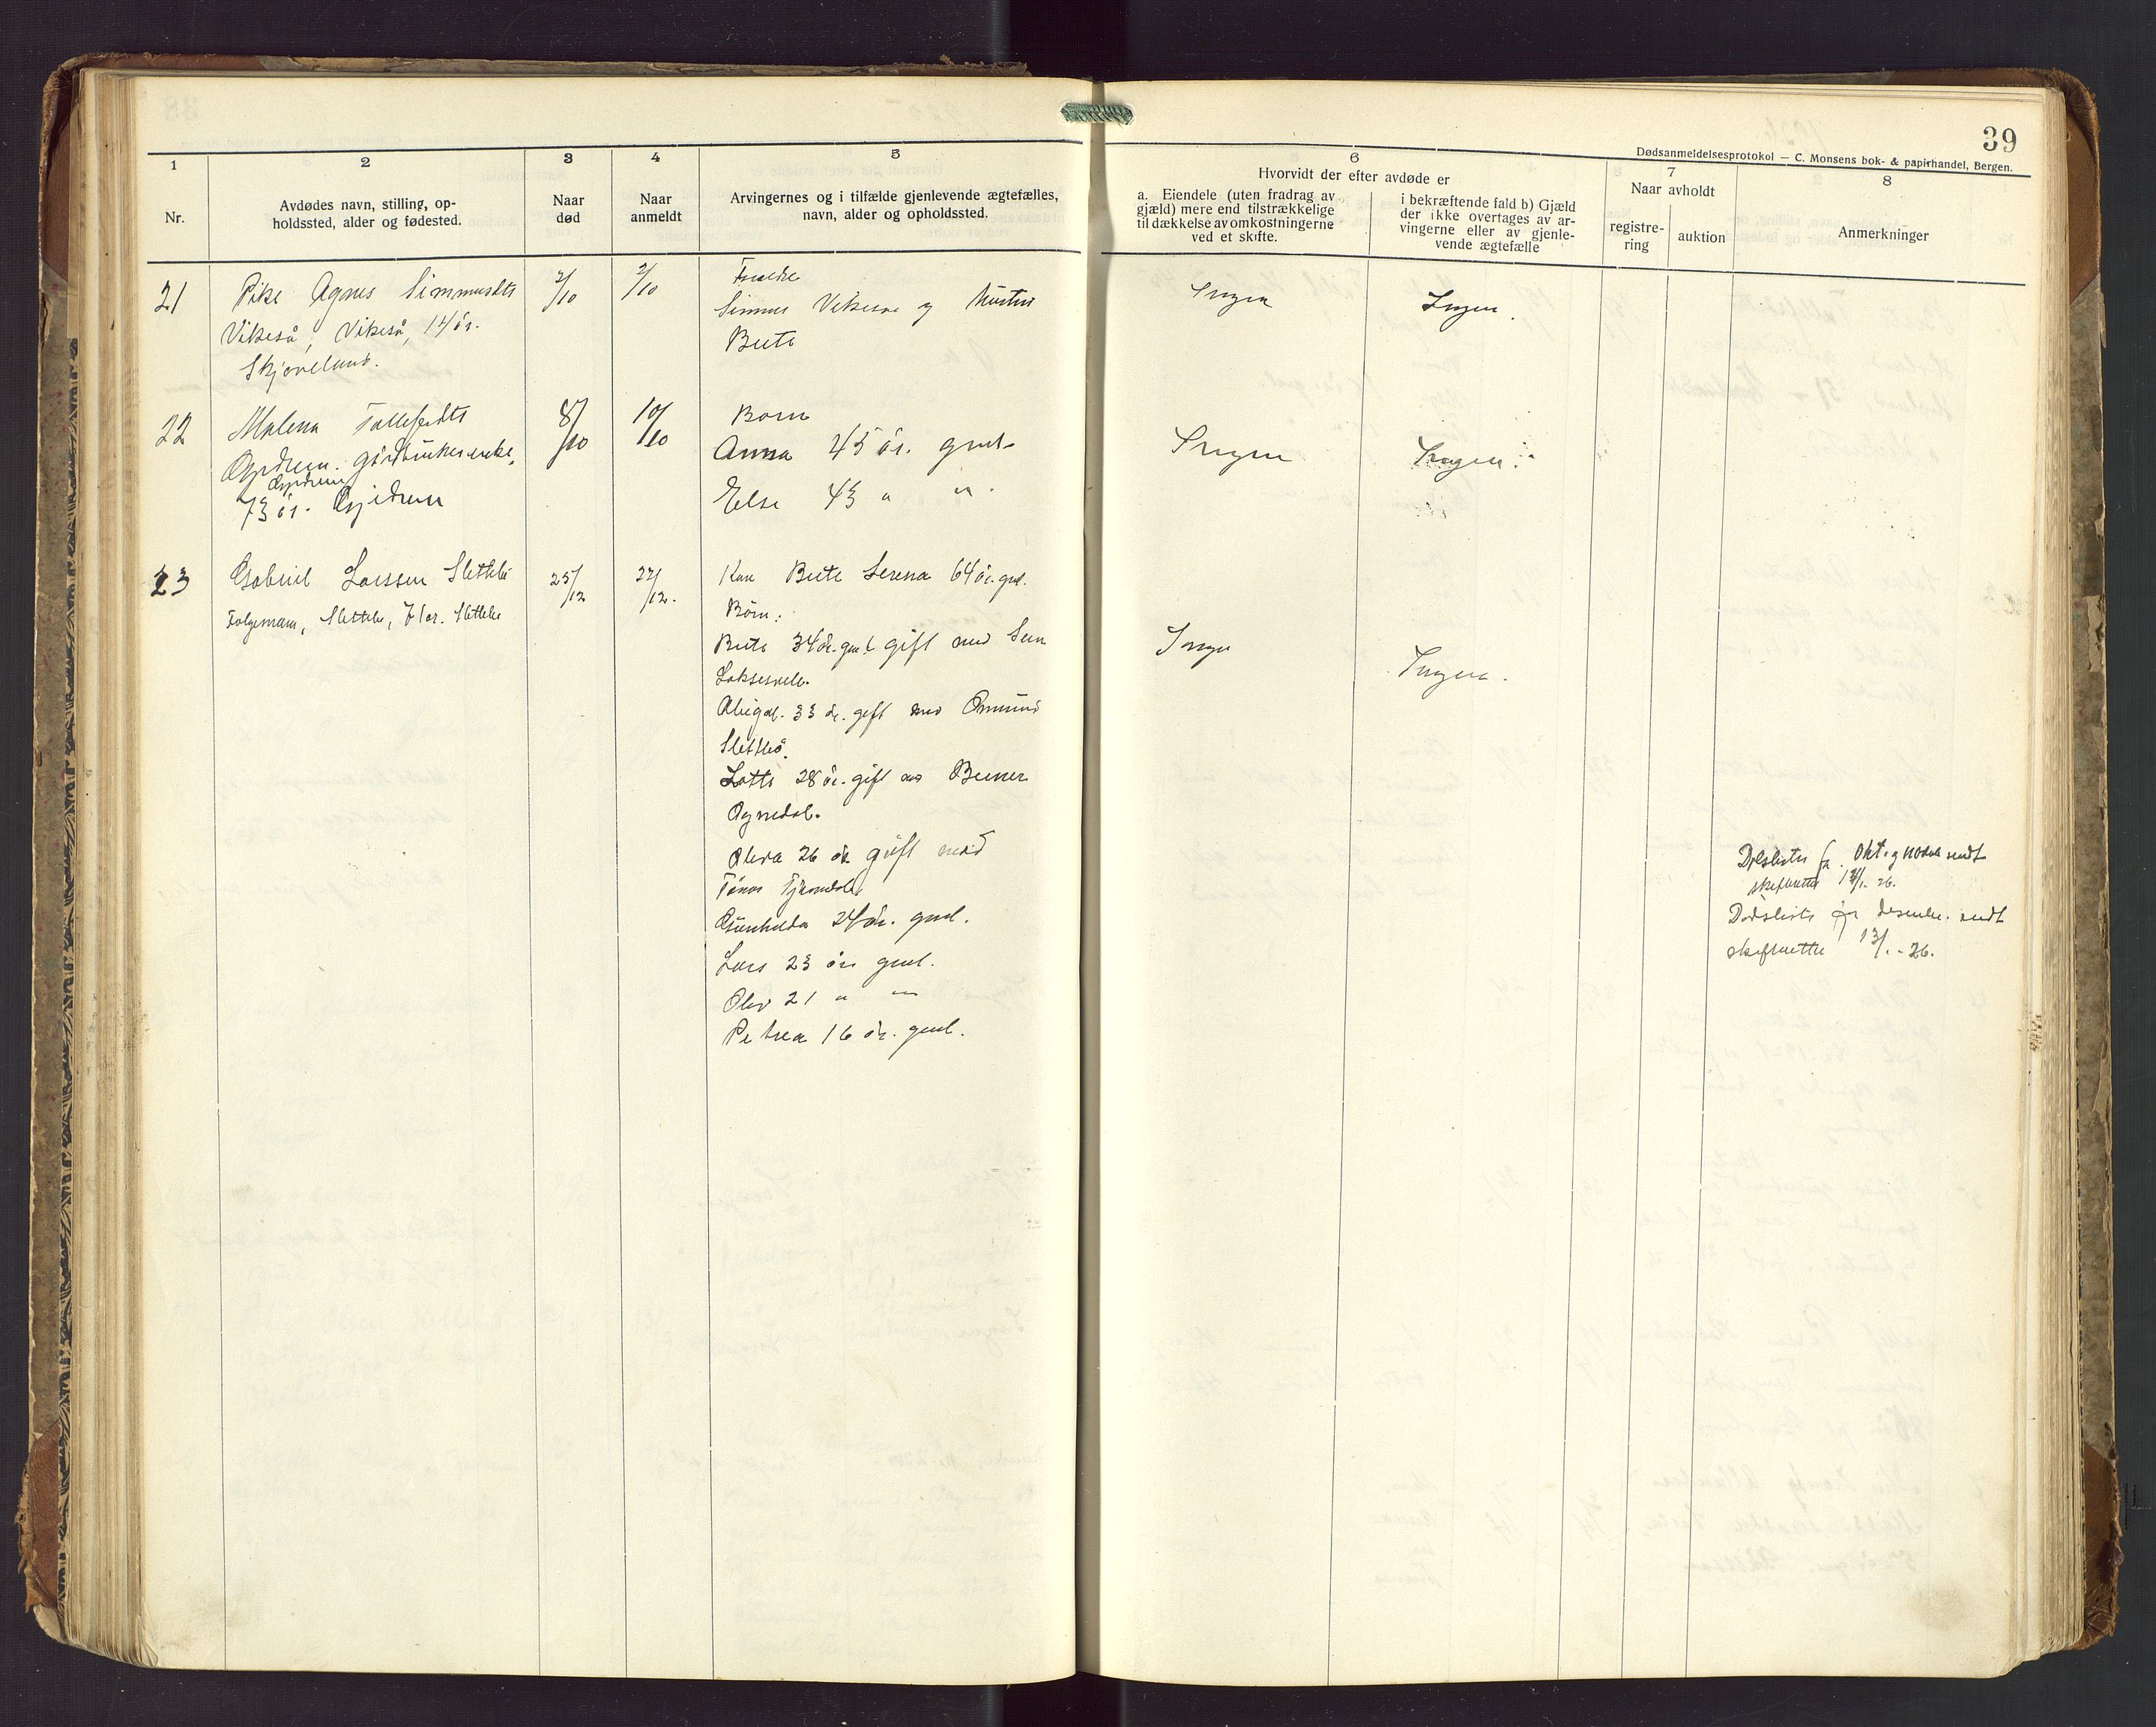 39
Dødsanmeldelsesprotokol — C. Monsens bok- & papirhandel, Bergen.
1
Nr.
2
Avdødes navn, stilling, op-
holdssted, alder og fødested.
3
Naar
død
4
Naar
anmeldt
5
Arvingernes og i tilfælde gjenlevende ægtefælles,
navn, alder og opholdssted.
6
Hvorvidt der efter avdøde er
a. Eiendele (uten fradrag av
gjæld) mere end tilstrækkelige
til dækkelse av omkostningerne
ved et skifte.
i bekræftende fald b) Gjæld
der ikke overtages av ar-
vingerne eller av gjenle-
vende ægtefælle
7
Naar avholdt
registre-
ring
auktion
8
Anmerkninger
21
Pike Agnes Simmusdtr
Vikeså, Vikeså, 14 år.
Skjæveland.
2/10
2/10
Foreldre
Simmus Vikesaa og hustru
Berte
Ingen
Ingen.
22
Malena Tollefsdtr
gårdbrukerenke,
73 år.
8/10
10/10
Børn
Anna 45 år. gml.
Else 43 " "
Ingen
Ingen.
23
Gabriel Larssen Slettebø
Folgemann, Slettebø, 71 år. Slettebø
25/12
27/12.
Kone Berte Serena 64 år. gml.
Børn:
Berte 34 år. gml gift med Sven
Abigael. 33 år. gift med Omund
Slettebø.
Lotte 28 år. gift med Berner
Ognedal.
Olava 26 år gift med
Tønes
Gunhilda 24 år. gml.
Lars 23 år gml.
Olav 21 " "
Petrea 16 år. gml.
Ingen
Ingen.
Dødslister for Okt. og novbr sendt
skifteretten 13/1. 26.
Dødsliste for desember sendt
skifteretten 13/1.-26.